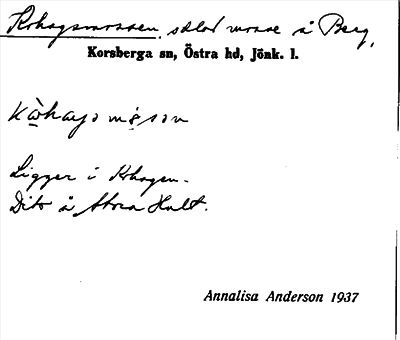 Kohagsmossen, sklod mosse å Berg,
Korsberga sn, Östra hd, Jönk. l.
Ligger i Kohagen.
Dito å Stora Hult.
Annalisa Anderson 1937